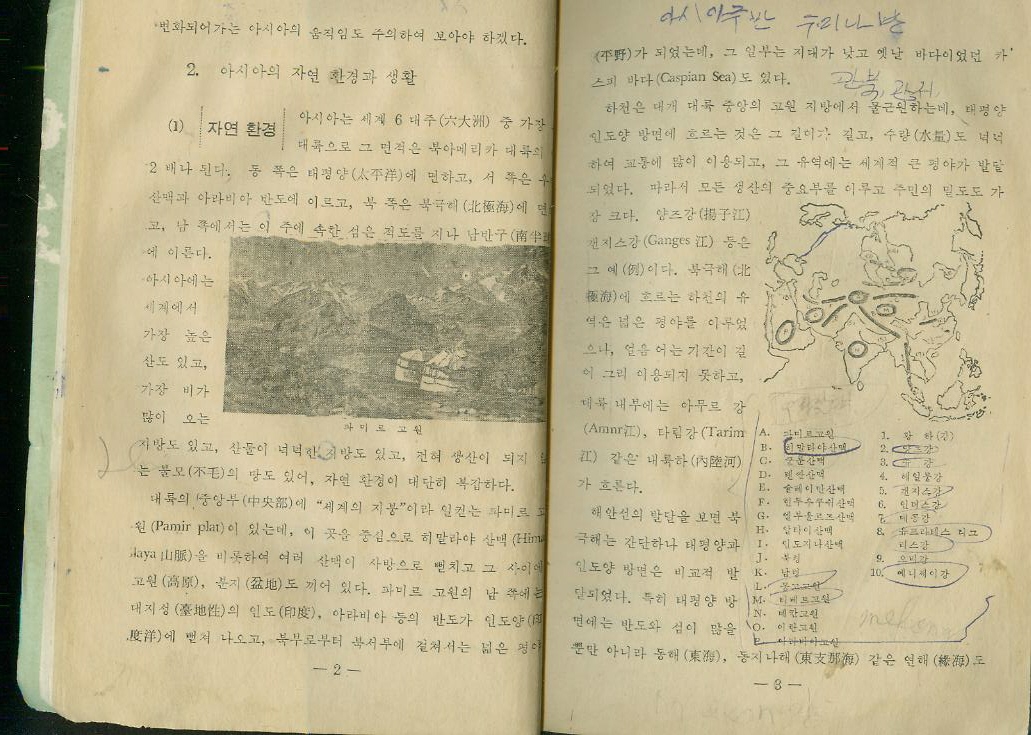 변화되어가는 아시아의 움직임도 주의하여 보아야 하겠다.
2. 아시아의 자연 환경과 생활
(1) 자연 환경
아시아는 세계 6 대주(六大洲) 중 가장
대륙으로 그 면적은 북아메리카 대륙의
2 배나 된다. 동 쪽은 태평양(太平洋)에 면하고, 서 쪽은 우
산맥과 아라비아 반도에 이르고, 북 쪽은 북극해(北極海)에 면
고, 남 쪽에서는 이 주에 속한 섬은 적도를 지나 남반구(南半
에 이른다.
아시아에는
세계에서
가장 높은
산도 있고,
가장 비가
많이 오는
파미르 고원
지방도 있고, 산물이 넉넉한 지방도 있고, 전혀 생산이 되지
는 불모(不毛)의 땅도 있어, 자연 환경이 대단히 복잡하다.
대륙의 중앙부(中央部)에 “세계의 지붕”이라 일컫는 파미르 고
원(Pamir plat)이 있는데, 이 곳을 중심으로 히말라야 산맥(Hima
laya 山脈)을 비롯하여 여러 산맥이 사방으로 뻗치고 그 사이에
고원(高原), 분지(盆地)도 끼어 있다. 파미르 고원의 남 쪽에는
대지성(臺地性)의 인도(印度), 아라비아 등의 반도가 인도양(印
度洋)에 뻗쳐 나오고, 북부로부터 북서부에 걸쳐서는 넓은 평야
— 2 —
아시아주반 우리나반
(平野)가 되었는데, 그 일부는 지대가 낮고 옛날 바다이었던 카
스피 바다(Caspian Sea)도 있다.
하천은 대개 대륙 중앙의 고원 지방에서 물근원하는데, 태평양
인도양 방면에 흐르는 것은 그 길이가 길고, 수량(水量)도 넉넉
하여 교통에 많이 이용되고, 그 유역에는 세계적 큰 평야가 발달
되었다. 따라서 모든 생산의 중요부를 이루고 주민의 밀도도 가
장 크다. 양즈강(揚子江)
갠지스강(Ganges 江) 등은
그 예(例)이다. 북극해(北
極海)에 흐르는 하천의 유
역은 넓은 평야를 이루었
으나, 얼음 어는 기간이 길
어 그리 이용되지 못하고,
대륙 내부에는 아무르 강
(Amnr江), 타림강(Tarim
江) 같은 내륙하(內陸河)
가 흐른다.
해안선의 발단을 보면 북
극해는 간단하나 태평양과
인도양 방면은 비교적 발
달되었다. 특히 태평양 방
면에는 반도와 섬이 많을
뿐만 아니라 동해(東海), 동지나해(東支那海) 같은 연해(緣海)도
A. 파미르고원
B. 히말라야산맥
C. 쿤룬산맥
D. 텐샨산맥
E. 술레이만산맥
F. 힌두쿠쉬산맥
G.
H. 알타이산맥
I. 인도지나산맥
J. 북령
K. 남령
L. 몽고고원
M. 티베트고원
N. 데칸고원
O. 이란고원
P. 아라비아고원
1. 황 하(강)
2. 양즈강
3.
4. 헤일룽강
5. 갠지스강
6. 인더스강
7. 메콩강
8. 유프라테스 티그
리스강
9. 오비강
10. 예니세이강
mekong
— 3 —